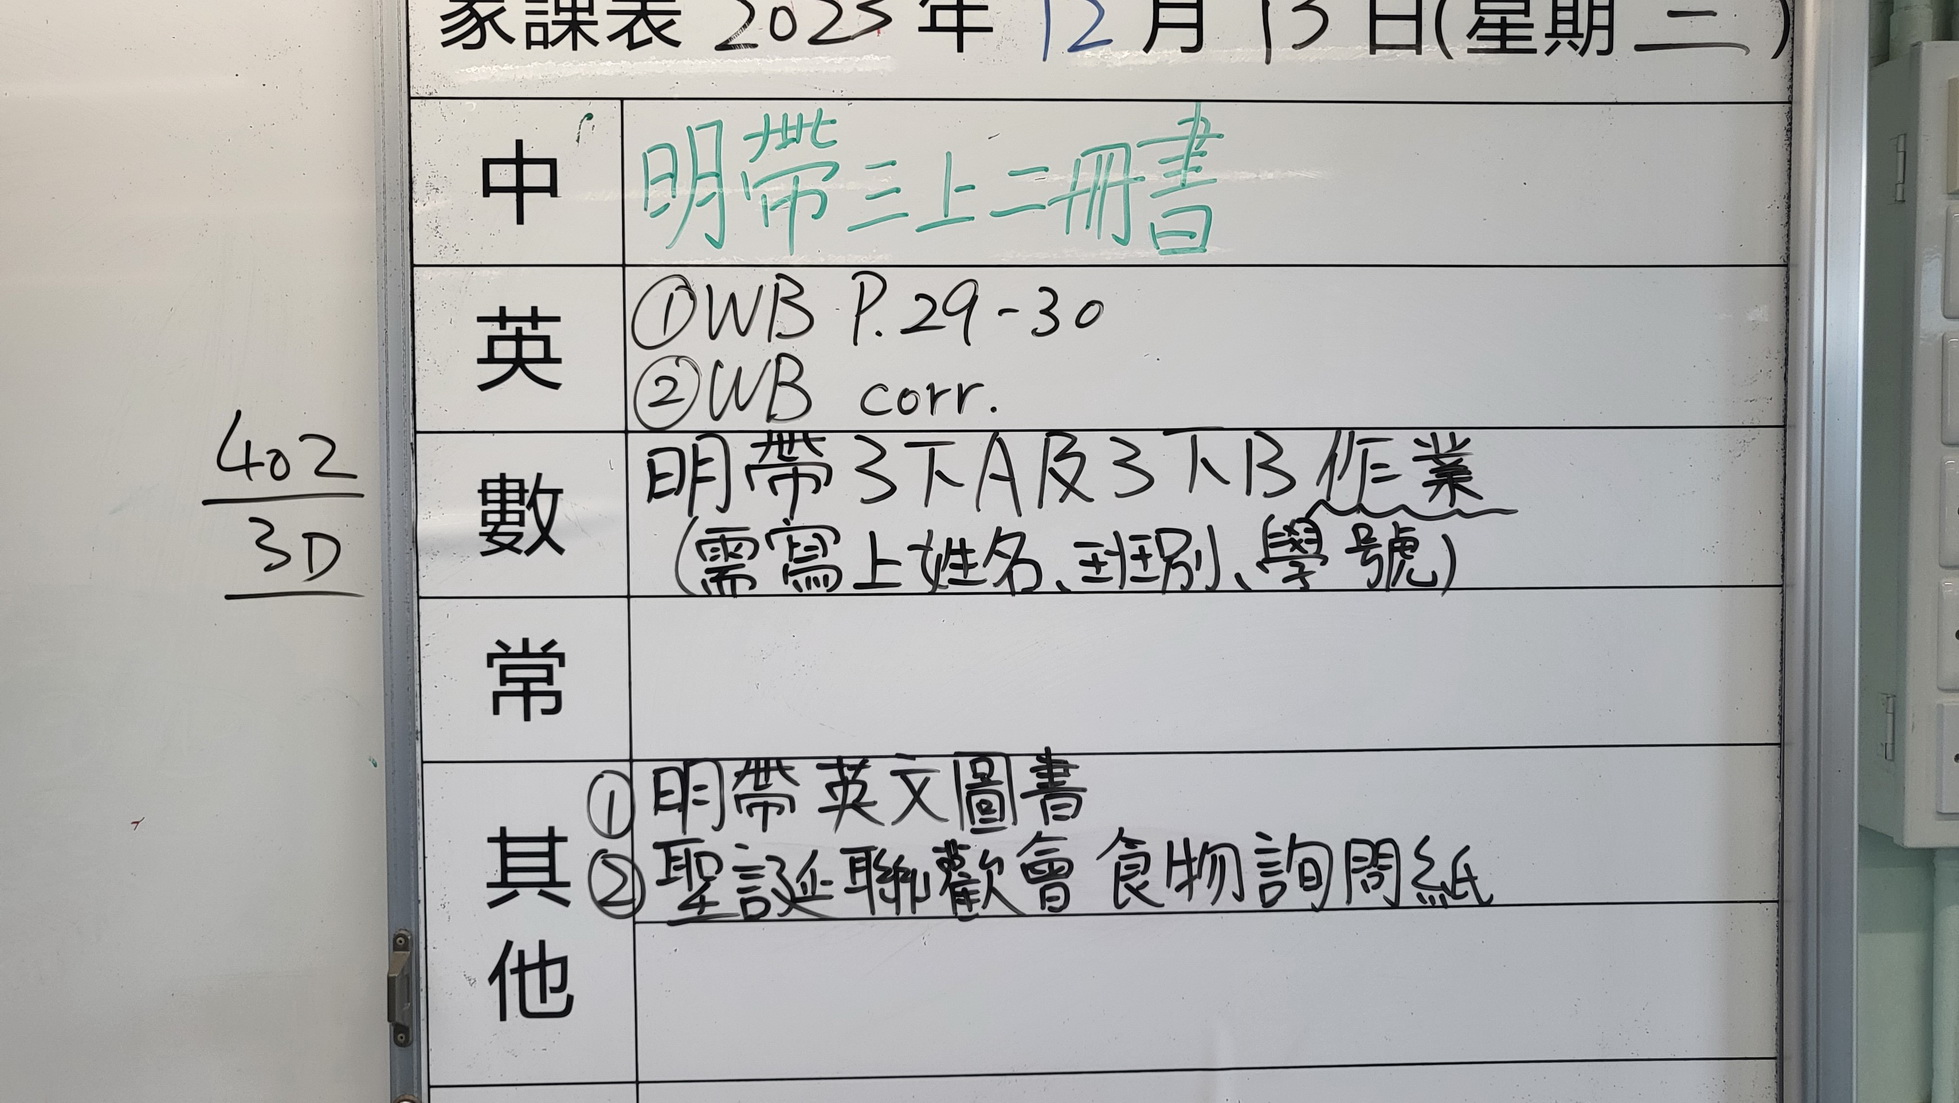 家課表 2023 年 12 月 13 日(星期 三)
中 明帶三上二冊書
英 ①WB P.29-30
②WB corr.
402
3D
數 明帶3下A及3下B作業
(需寫上姓名、班別、學號)
常
其他 ①明帶英文圖書
②聖誕聯歡會食物詢問紙